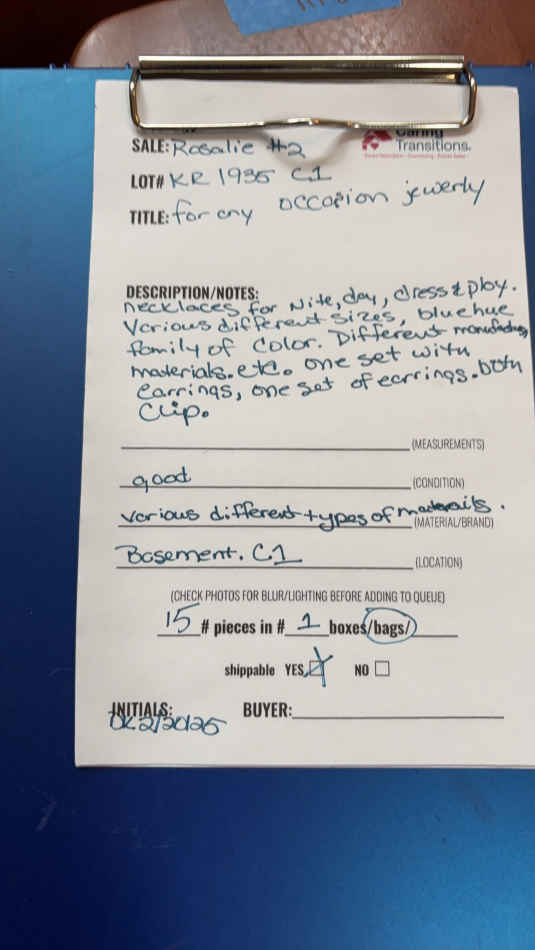 Caring
Transitions.
SALE: Rosalie #2
LOT# KR 1935 C1
TITLE: for any occasion jewerly
DESCRIPTION/NOTES:
necklaces for Nite, day, dress & play.
Various different sizes, blue hue
family of color. Different
materials. etc. one set with
earrings, one set of earrings. both
Clip.
(MEASUREMENTS)
good (CONDITION)
various different types of
(MATERIAL/BRAND)
Basement. C1 (LOCATION)
(CHECK PHOTOS FOR BLUR/LIGHTING BEFORE ADDING TO QUEUE)
15 # pieces in # 1 boxes/bags/
shippable YES NO
INITIALS: BUYER:
2/20/25